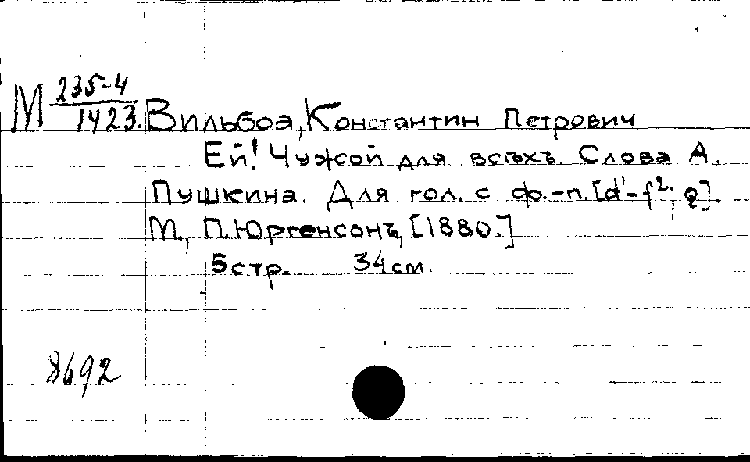 М 235-4
1423. Вильбоа, Константин Петрович
Ей! Чужой для всѣхъ. Слова А.
Пушкина. Для гол. с ф.-п. [d'-f²; g].
М., П. Юргенсонъ, [1880.]
5 стр. 34 см.
8692